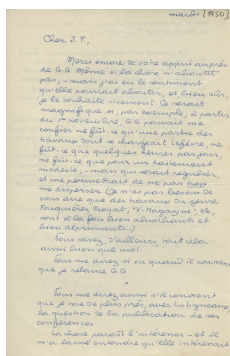 mardi [1950]
Cher J. P.,
Merci encore de votre appui auprès
de G.G. Même si la chose n'aboutit
pas, - mais j'ai eu le sentiment
qu'elle pourrait aboutir, et bien sûr
je le souhaite vivement. Ce serait
magnifique si, par exemple, à partir
du 1er novembre G.G. pouvait me
confier ne fût-ce qu'une partie des
travaux dont se chargeait Lefèvre, ne
fût-ce que quelques heures par jour,
ne fût-ce que pour un traitement
modeste, - mais qui serait régulier,
et me permettrait de ne pas trop
me disperser (Ce n'est pas besoin de
vous dire que des travaux du genre
Fasquelles, Troyat, "V. Magazine", etc,
sont à la fois bien absorbants et
bien déprimants.)
Vous savez d'ailleurs tout cela
aussi bien que moi.
Vous me direz si ou quand il convient
que je relance G.G.
Vous me direz aussi s'il convient
que je voie de plus près, avec
la question de la publication de nos
conférences.
La chose paraît l'intéresser - et il
m'a laissé entendre qu'elle intéressait